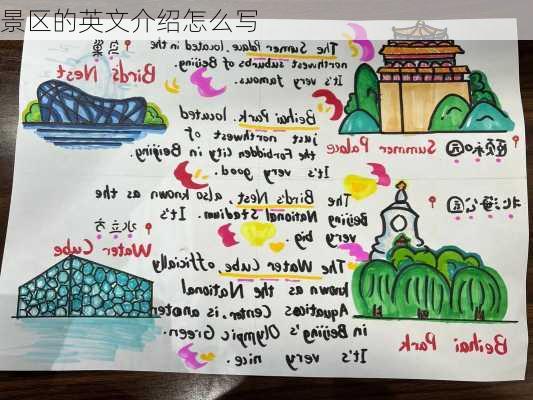 景区的英文介绍怎么写
鸟巢
Bird's Nest
The Summer Palace. located in the
northwest suburbs of Beijing.
It's very famous.
颐和园
Summer Palace
Beihai Park. located
just northwest of
the Forbidden City in Beijing.
It's very good.
The Bird's Nest. also known as the
Beijing National Stadium. It's
very big.
北海公园
Beihai Park
水立方
Water Cube
The Water Cube officially
known as the National
Aquatics Center, is
in Beijing's Olympic Green.
It's very nice.